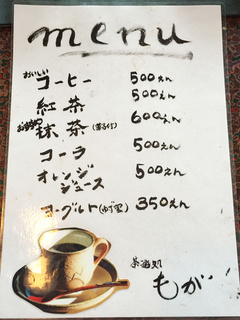 menu
おいしい
コーヒー 500えん
紅茶 500えん
抹茶(菓子付) 600えん
コーラ 500えん
オレンジ
ジュース 500えん
ヨーグルト(ゆず蜜) 350えん
茶遊処
もが